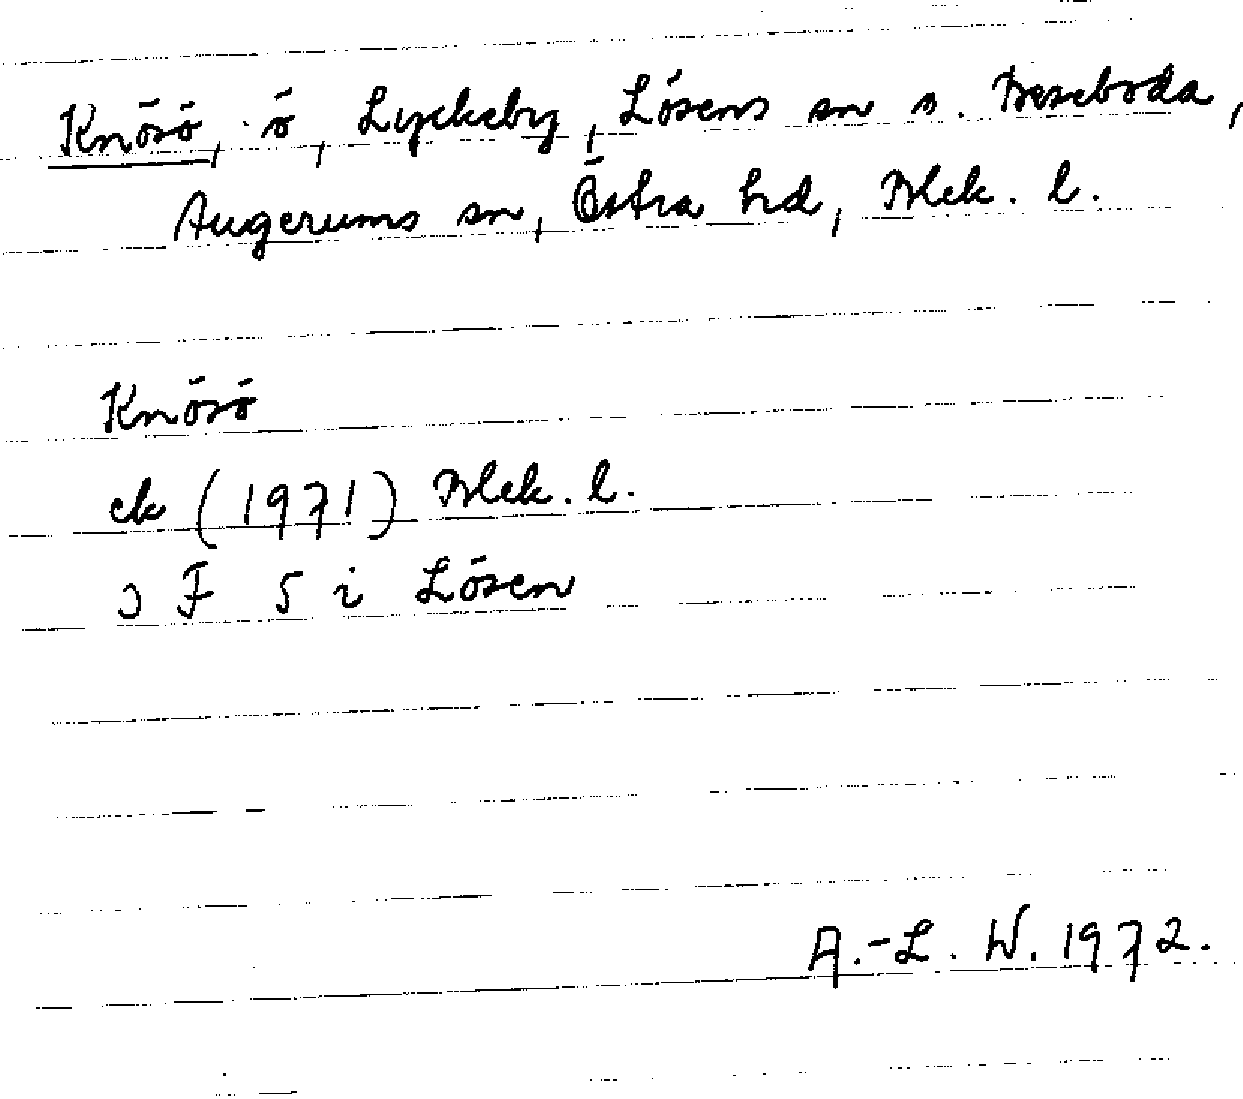 Knösö, ö, Lyckeby, Lösens sn o. Bereboda,
Augerums sn, Östra hd, Blek. l.
Knösö
ek (1971) Blek. l.
3 F 5 i Lösen
A.-L. W. 1972.